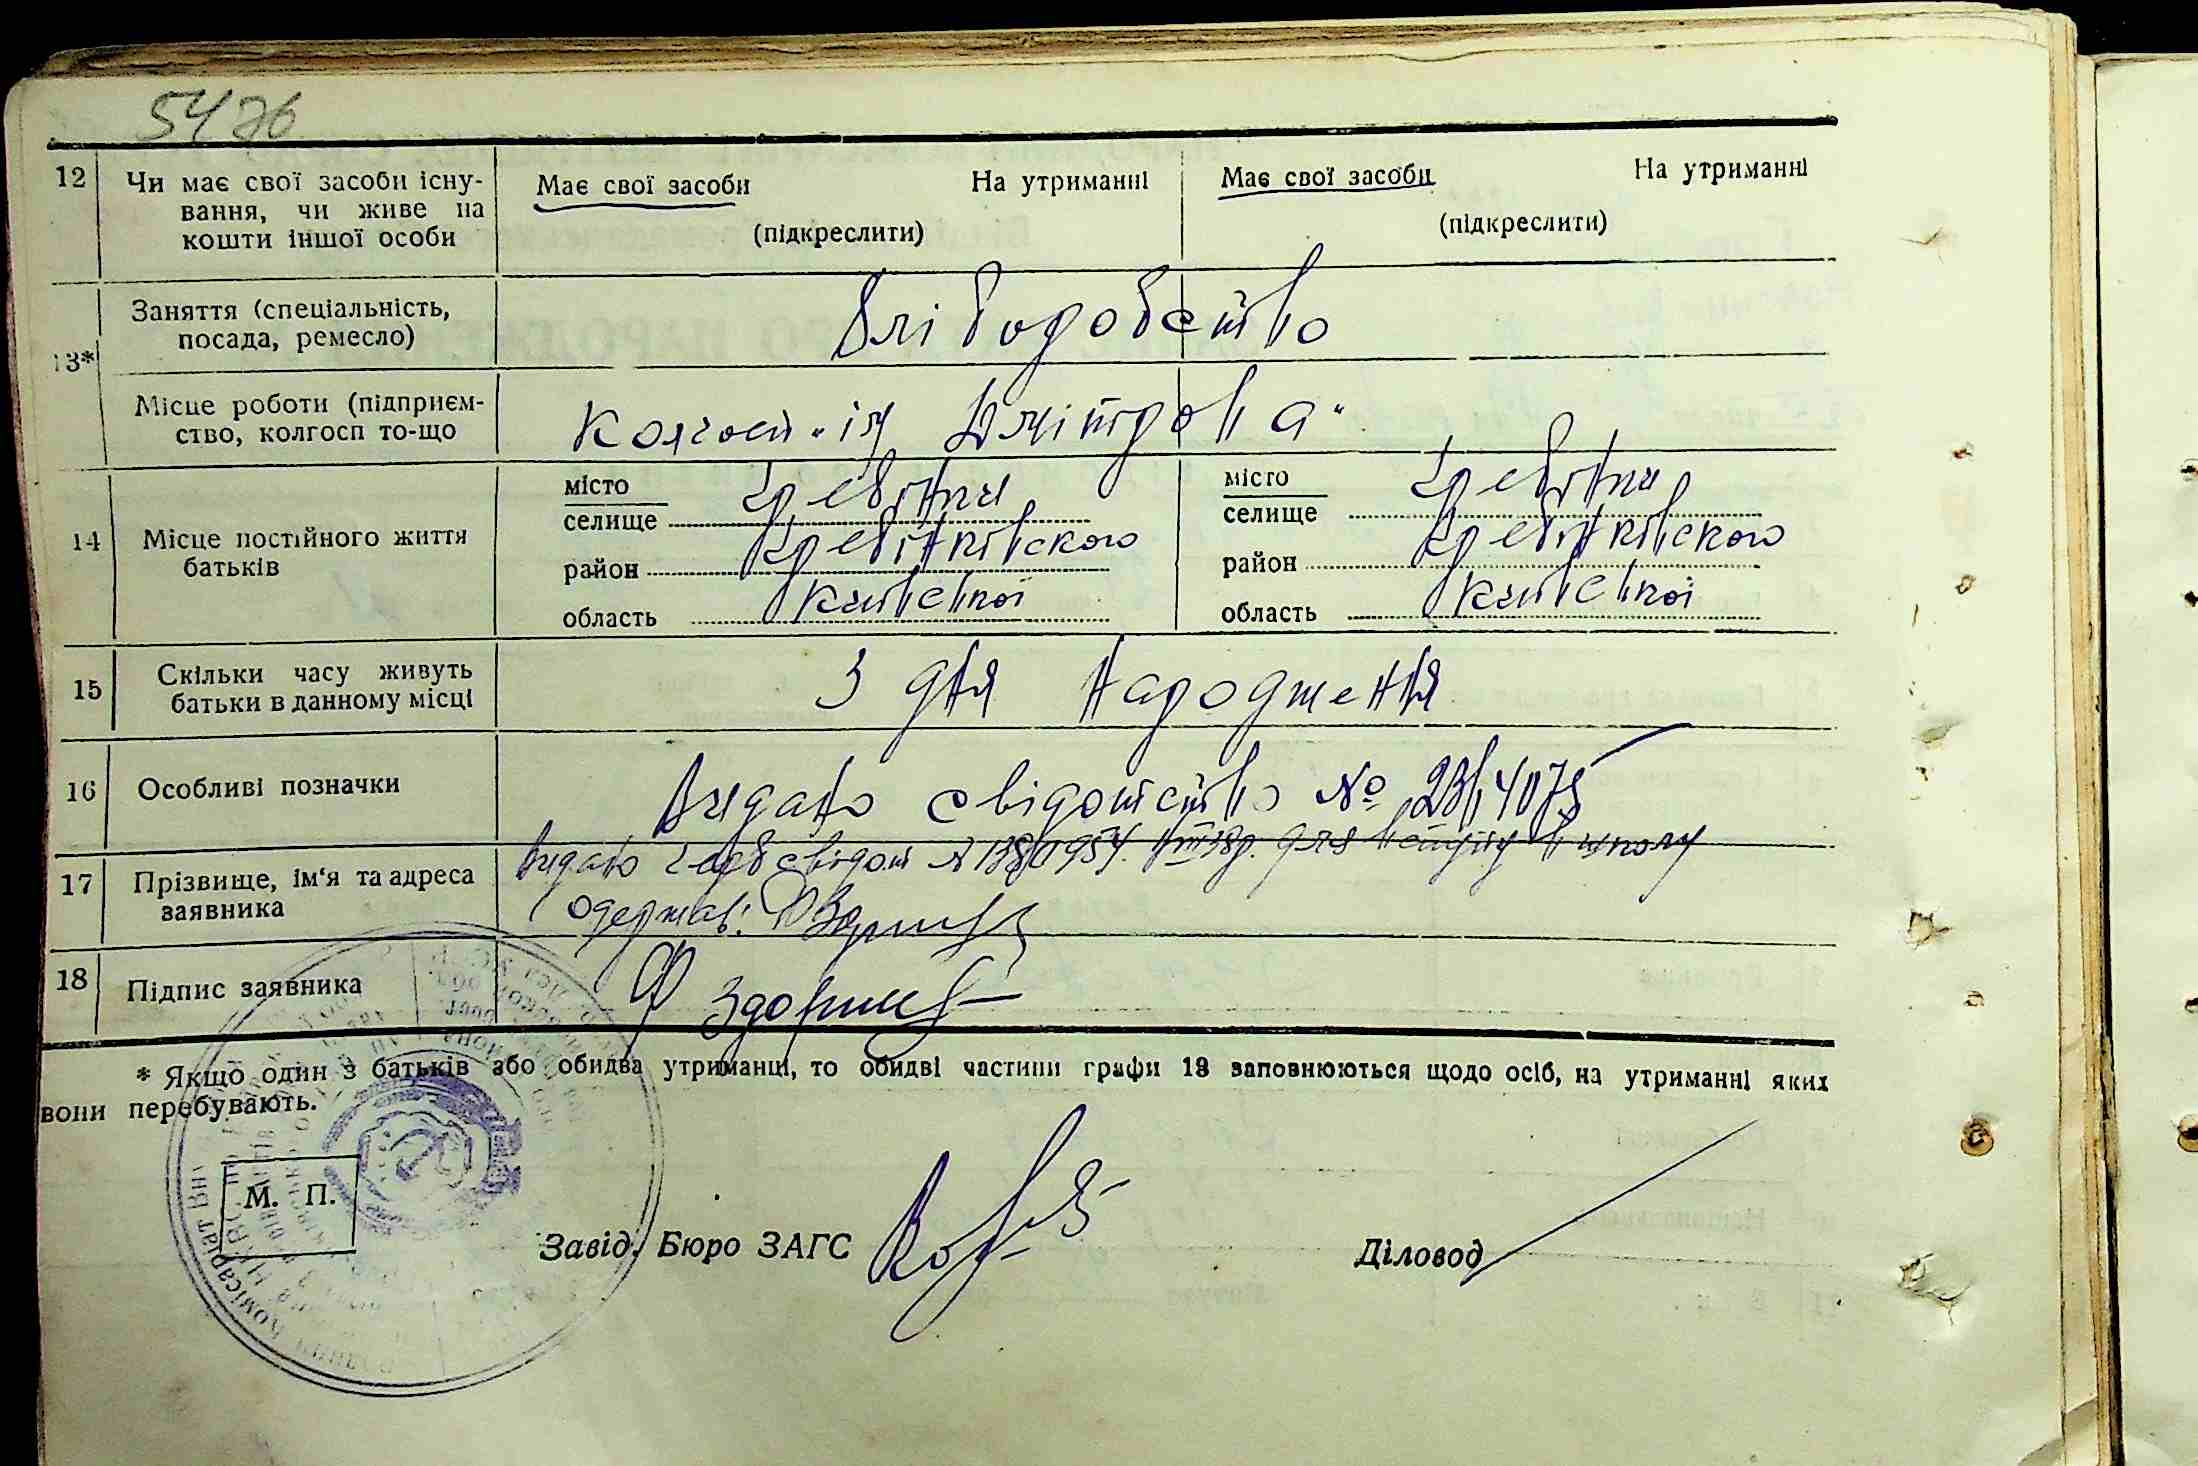 547об
12 Чи має свої засоби існу- Має свої засоби На утриманні Має свої засоби На утриманні
вання, чи живе на
кошти іншої особи (підкреслити) (підкреслити)
13* Заняття (спеціальність,
посада, ремесло) Хліборобство
Місце роботи (підприєм-
ство, колгосп то-що Колгосп "ім Дмітрова"
14 Місце постійного життя
батьків
місто Гребінки місто Гребінки
селище селище
район Гребінківского район Гребінківского
область Київської область Київської
15 Скільки часу живуть
батьки в данному місці З дня народження
16 Особливі позначки Видано свідотство №
17 Прізвище, ім'я та адреса
заявника
Видано свідот для вступу в школу
Одержав:
18 Підпис заявника
* Якщо один з батьків або обидва утриманці, то обидві частини графи 13 заповнюються щодо осіб, на утриманні яких
вони перебувають.
М. П.
Завід. Бюро ЗАГС Діловод